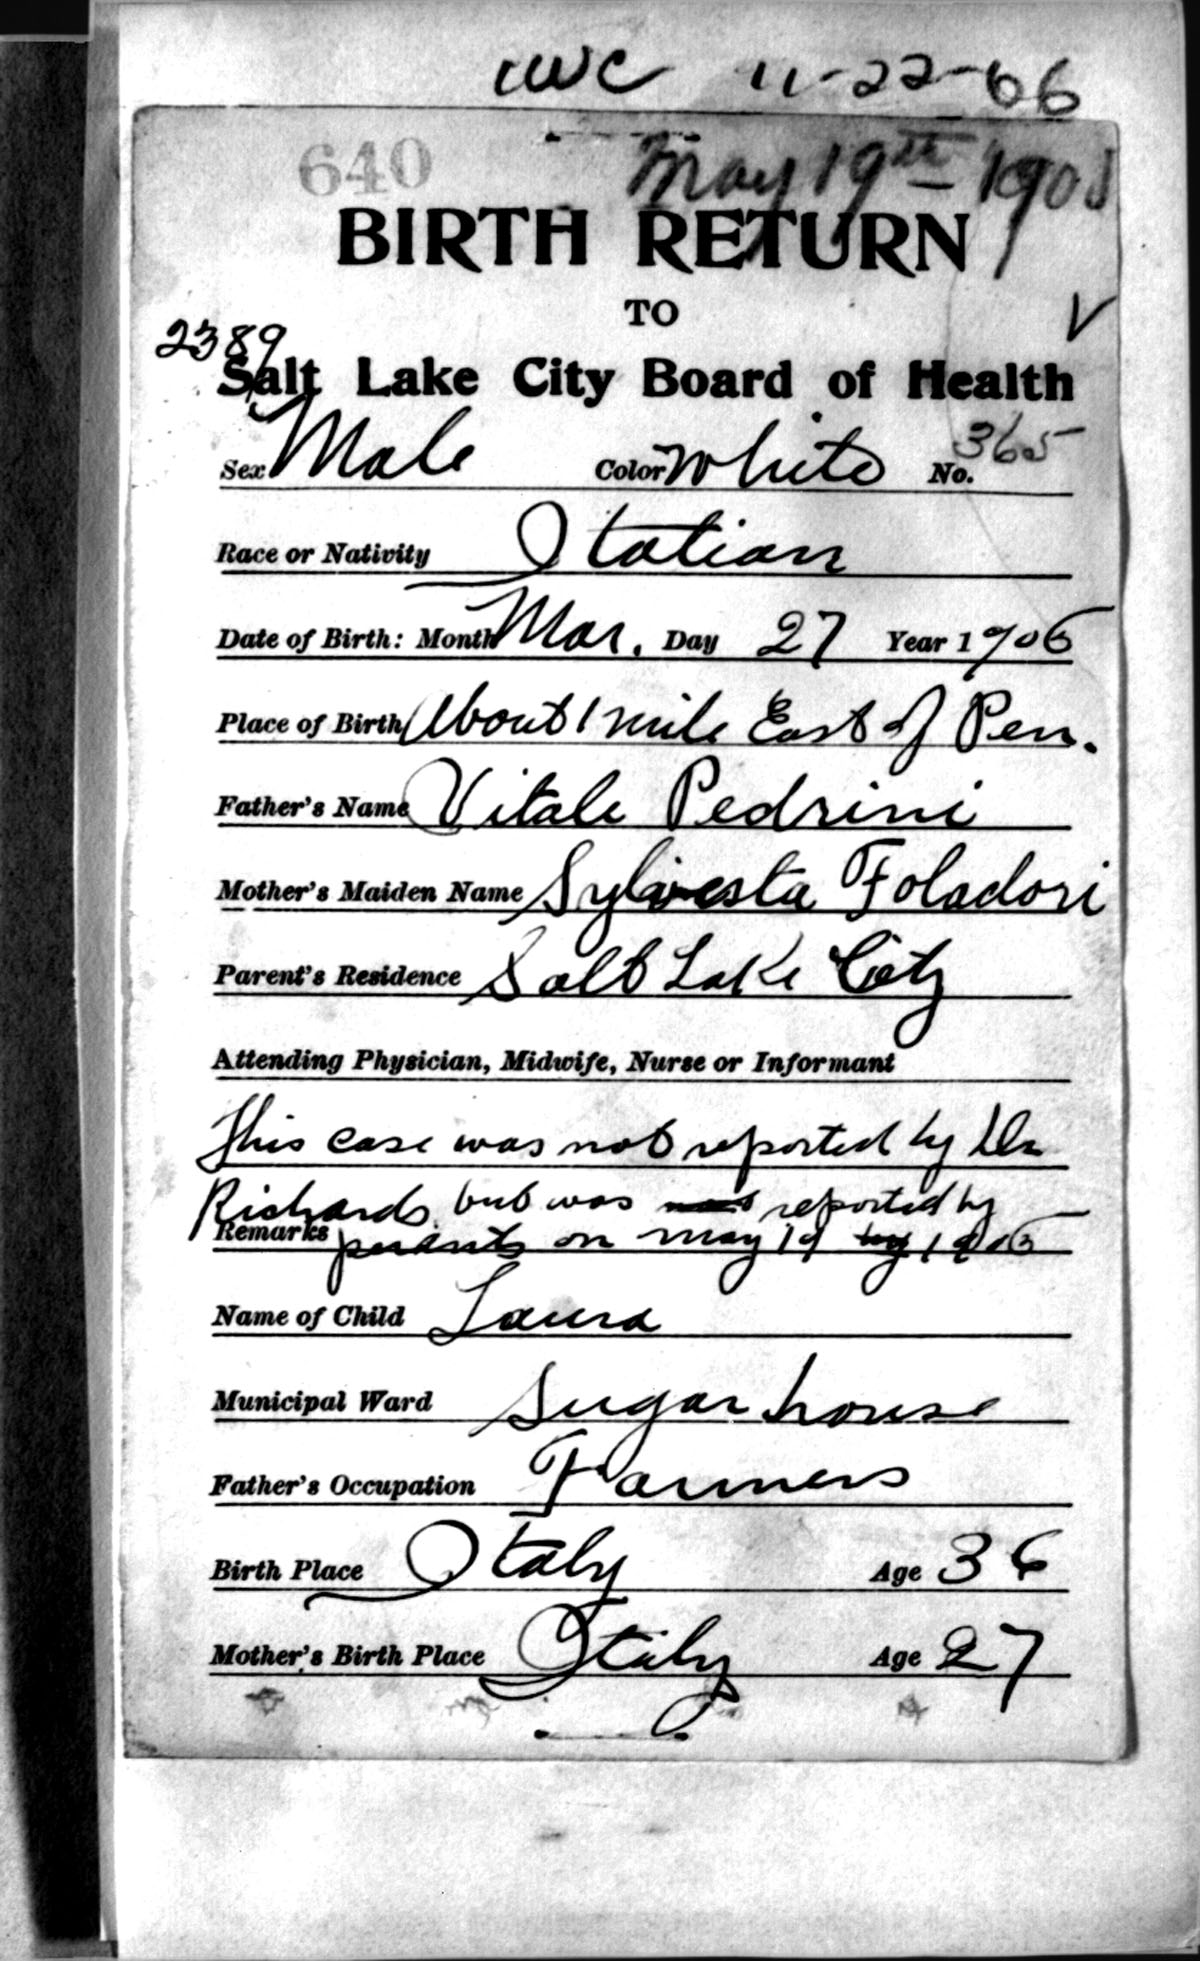 WC 11-22-66
640 May 19th 1905
BIRTH RETURN
TO
2389
Salt Lake City Board of Health
Sex Male Color White No. 365
Race or Nativity Italian
Date of Birth: Month Mar. Day 27 Year 1906
Place of Birth About 1 mile East of Pen.
Father's Name Vitale Pedrini
Mother's Maiden Name Sylvesta Foladori
Parent's Residence Salt Lake City
Attending Physician, Midwife, Nurse or Informant
This case was not reported by Dr
Richards but was reported by
Remarks parents on May 19 1906
Name of Child Laura
Municipal Ward Sugar house
Father's Occupation Farmers
Birth Place Italy Age 36
Mother's Birth Place Italy Age 27